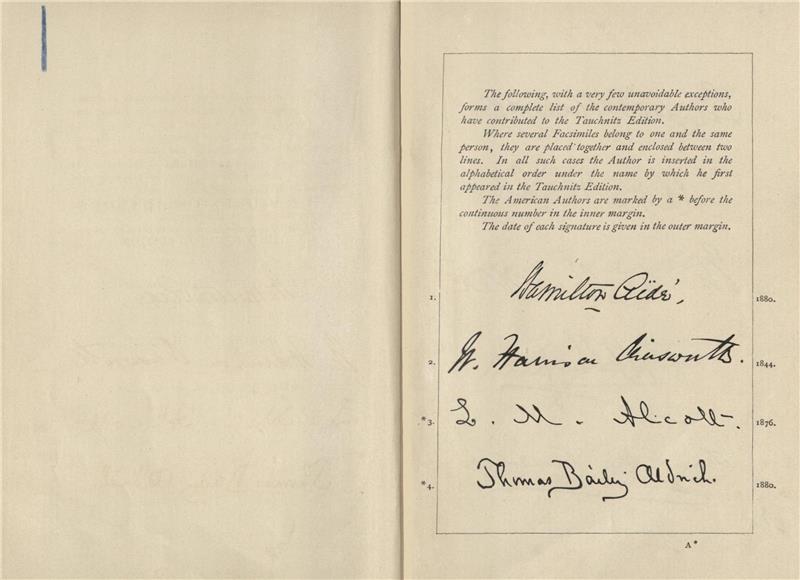 The following, with a very few unavoidable exceptions,
forms a complete list of the contemporary Authors who
have contributed to the Tauchnitz Edition.
Where several Facsimiles belong to one and the same
person, they are placed together and enclosed between two
lines. In all such cases the Author is inserted in the
alphabetical order under the name by which he first
appeared in the Tauchnitz Edition.
The American Authors are marked by a * before the
continuous number in the inner margin.
The date of each signature is given in the outer margin.
1. Hamilton Aïdé, 1880.
2. W. Harrison Ainsworth. 1844.
*3. L. M. Alcott. 1876.
*4. Thomas Bailey Aldrich. 1880.
A*